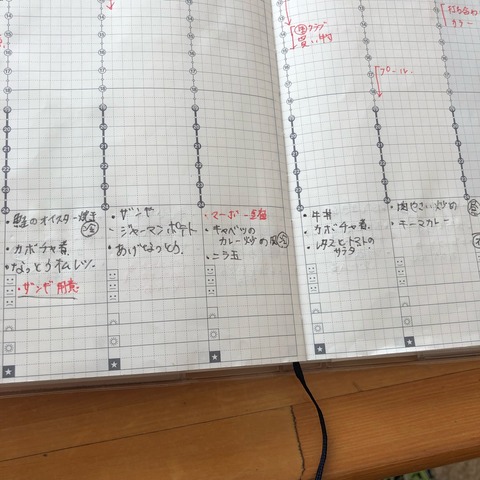 クラブ
買い物
プール
打ち合わ
カラー
・鮭のオイスター焼き
・カボチャ煮
・なっとうオムレツ
・ザンギ用意
・ザンギ
・ジャーマンポテト
・あげなっとう
・マーボー豆腐
・キャベツの
カレー炒め風
・ニラ玉
・牛丼
・カボチャ煮
・レタスとトマトの
サラダ
・肉やさい炒め
・キーマカレー